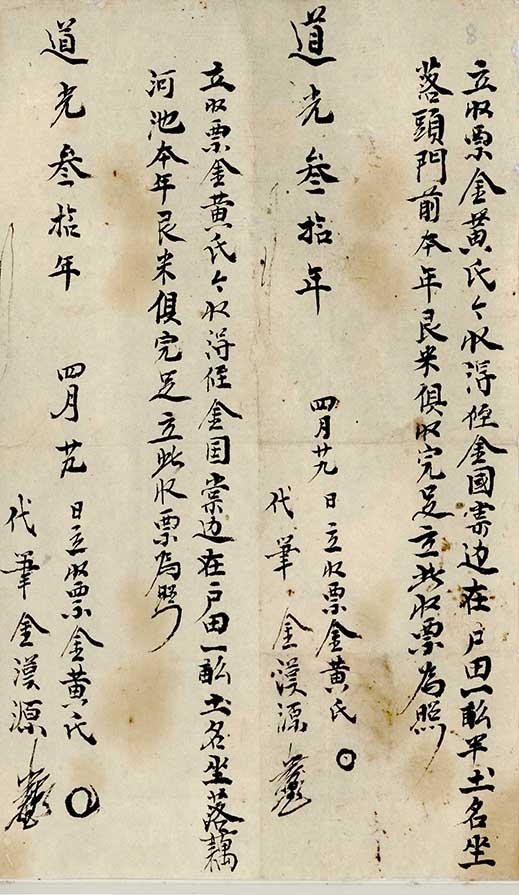 立收票金黃氏今收得侄金國棠边在戶田一畝平土名坐
落頭門前本年艮米俱收完足立此收票為照
道光叁拾年 四月廿九日立收票金黃氏 〇
代筆金漢源
立收票金黃氏今收得侄金国棠边在戶田一畝土名坐落藕
河池本年艮米俱完足立此收票為照
道光叁拾年 四月廿九日立收票金黃氏 〇
代筆金漢源
8